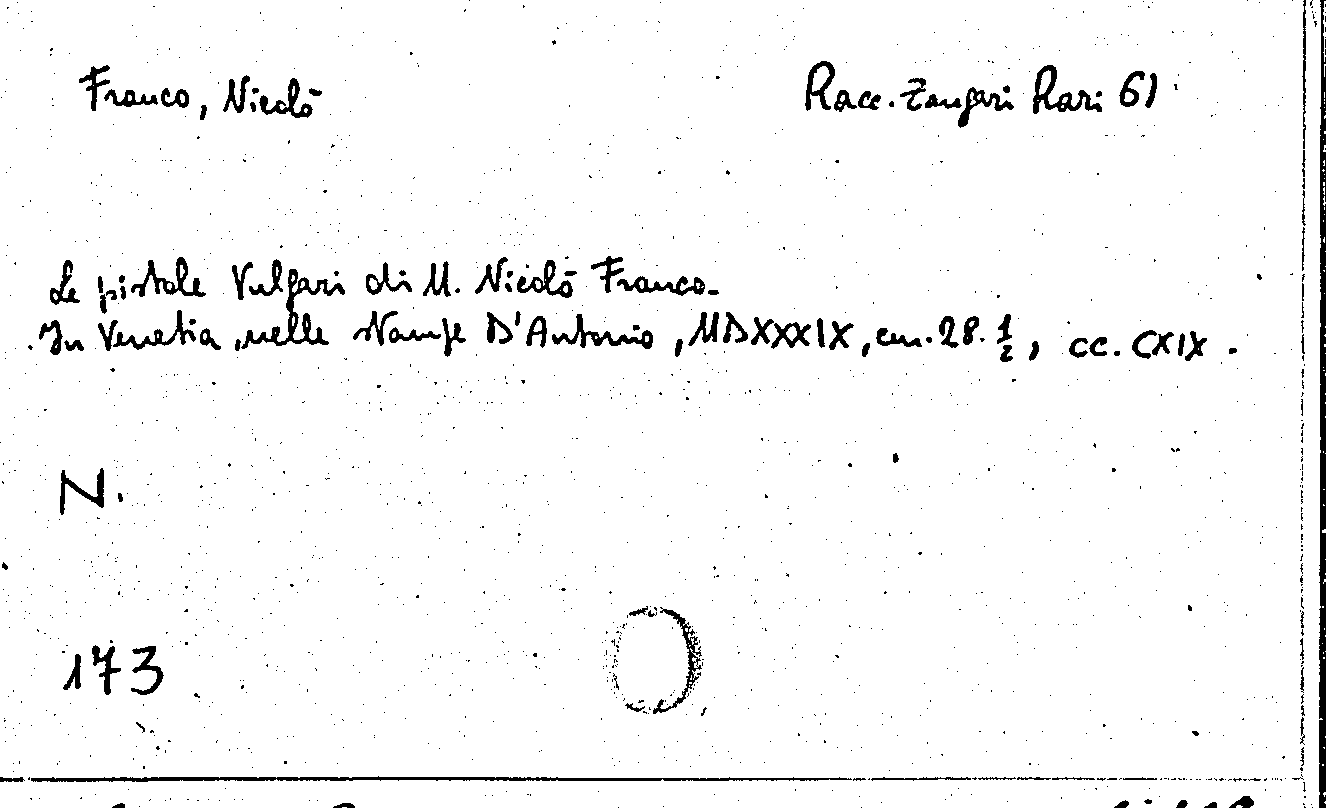 Franco, Nicolò
Racc. Zangari Rari 61
Le pistole Vulgari di M. Nicolò Franco.
In Venetia, nelle stampe D'Antonio, MDXXXIX, cm. 28. 1/2, cc. CXIX.
N.
173